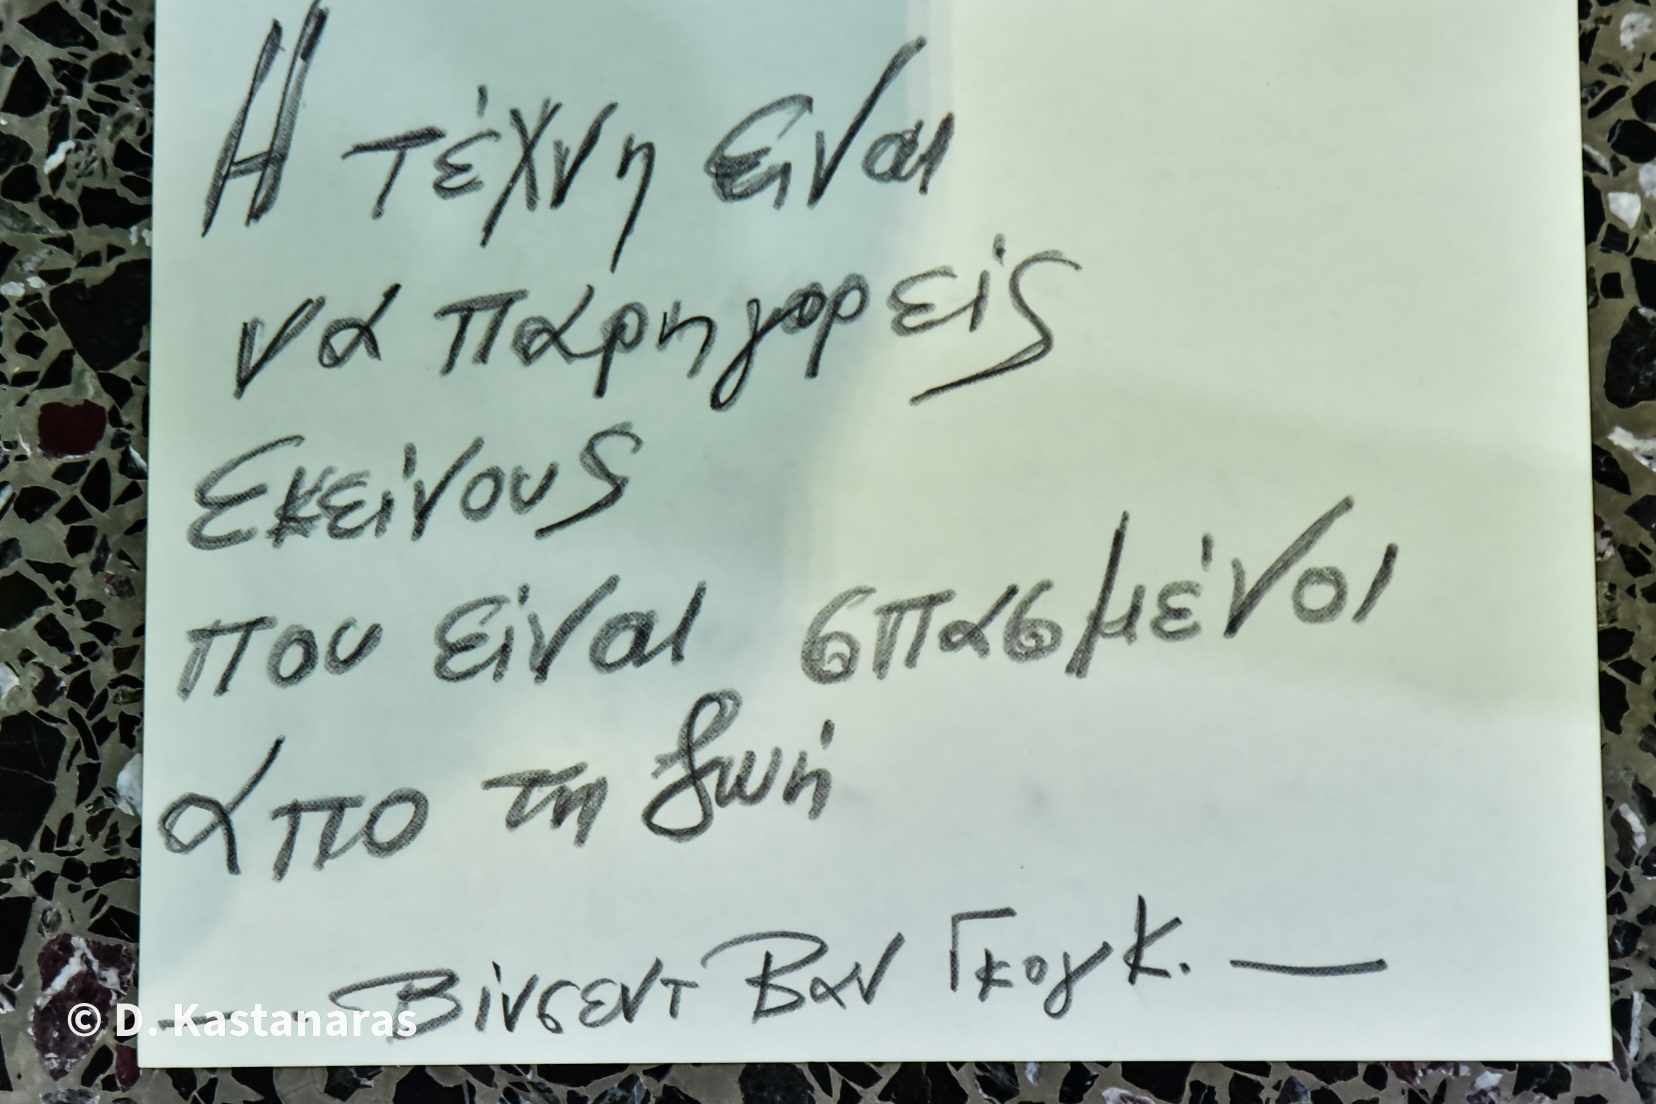 Η τέχνη ειναι
να παρηγορείς
εκείνους
που είναι σπασμένοι
απο τη ζωή
— Βίνσεντ Βαν Γκογκ. —
© D. Kastanaras